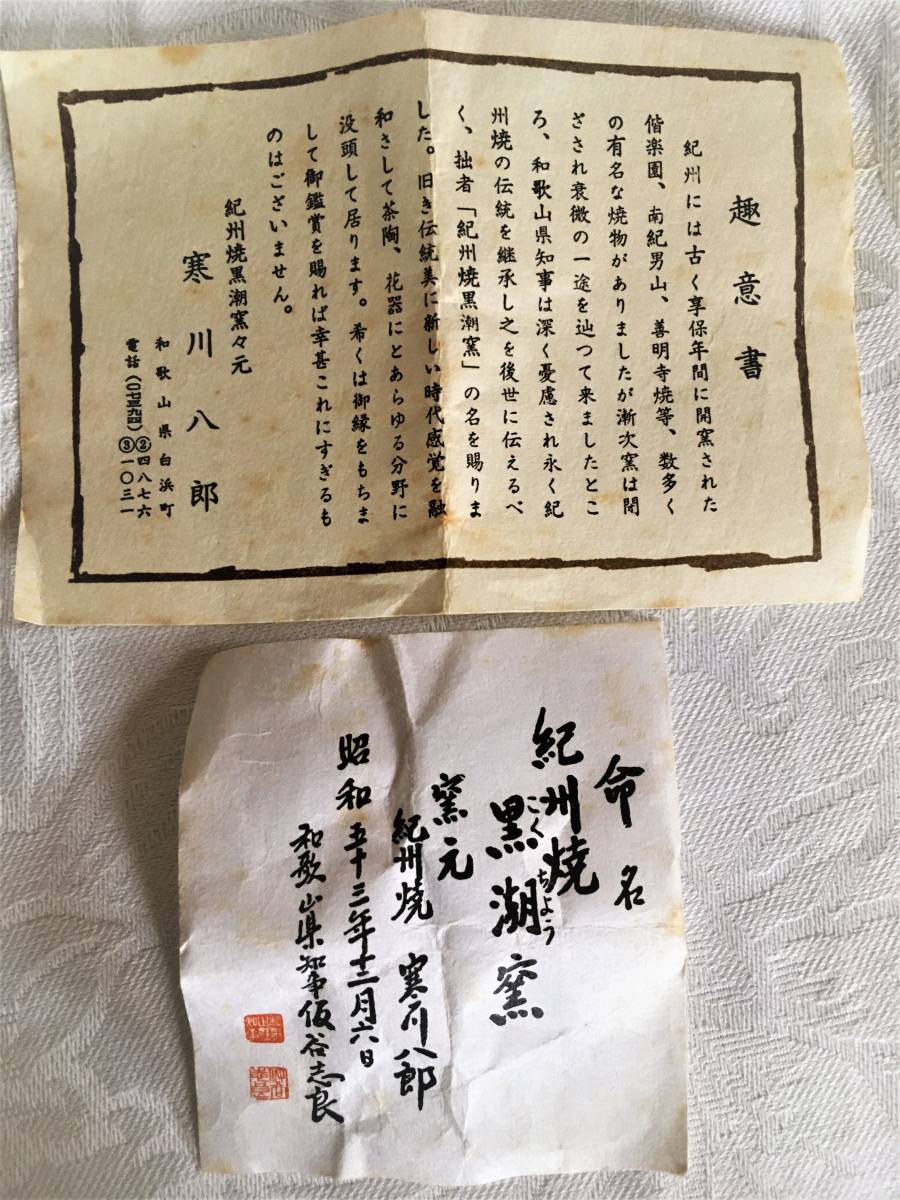 趣意書
紀州には古く享保年間に開窯された
偕楽園、南紀男山、善明寺焼等、数多く
の有名な焼物がありましたが漸次窯は閉
ざされ衰微の一途を辿つて来ましたとこ
ろ、和歌山県知事は深く憂慮され永く紀
州焼の伝統を継承し之を後世に伝えるべ
く、拙者「紀州焼黒潮窯」の名を賜りま
した。旧き伝統美に新しい時代感覚を融
和さして茶陶、花器にとあらゆる分野に
没頭して居ります。希くは御縁をもちま
して御鑑賞を賜れば幸甚これにすぎるも
のはございません。
紀州焼黒潮窯々元
寒川八郎
和歌山県白浜町
電話(〇七三九四)②四八七六
③一〇三一
命名
紀州焼
黒潮窯
こくちょう
窯元
紀州焼 寒川八郎
昭和五十三年十二月六日
和歌山県知事仮谷志良